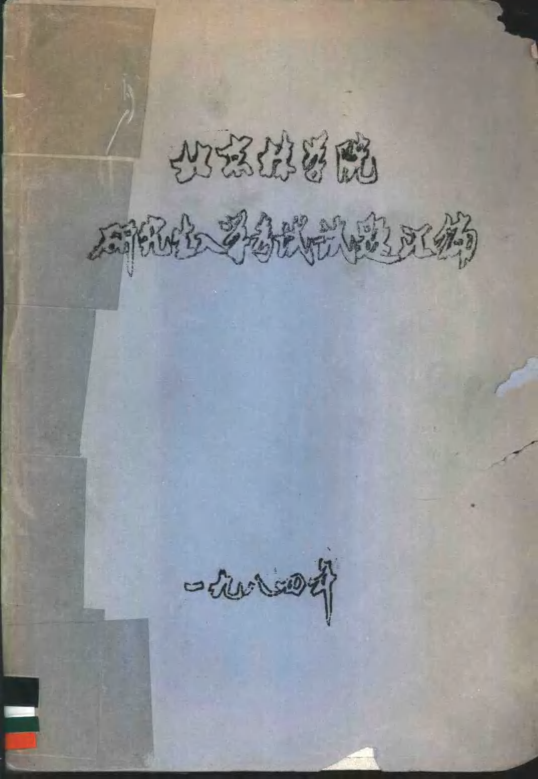 北京林学院
研究生入学考试试题汇编
一九八四年